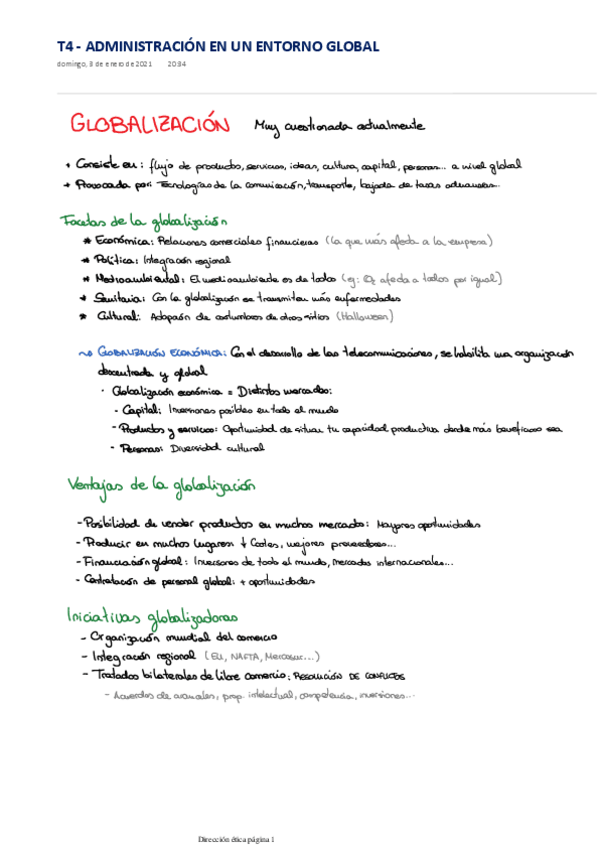 T4 - ADMINISTRACIÓN EN UN ENTORNO GLOBAL
domingo, 3 de enero de 2021 20:34
GLOBALIZACIÓN Muy cuestionada actualmente
+ Consiste en: flujo de productos, servicios, ideas, cultura, capital, personas... a nivel global
+ Provocada por: Tecnologías de la comunicación, transporte, bajada de tasas aduaneras...
Facetas de la globalización
* Económica: Relaciones comerciales financieras (la que más afecta a la empresa)
* Política: Integración regional
* Medioambiental: El medioambiente es de todos (eg: afecta a todos por igual)
* Sanitaria: Con la globalización se transmiten más enfermedades
* Cultural: Adopción de costumbres de otros sitios (Halloween)
GLOBALIZACIÓN ECONÓMICA: Con el desarrollo de las telecomunicaciones, se posibilita una organización
descentrada y global
· Globalización económica = Distintos mercados:
- Capital: Inversiones posibles en todo el mundo
- Productos y servicios: Oportunidad de situar tu capacidad productiva donde más beneficioso sea
- Personas: Diversidad cultural
Ventajas de la globalización
- Posibilidad de vender productos en muchos mercados: Mayores oportunidades
- Producir en muchos lugares: ↓ Costes, mejores proveedores...
- Financiación global: Inversores de todo el mundo, mercados internacionales...
- Contratación de personal global: + oportunidades
Iniciativas globalizadoras
- Organización mundial del comercio
- Integración regional (EU, NAFTA, Mercosur...)
- Tratados bilaterales de libre comercio: RESOLUCIÓN DE CONFLICTOS
- Acuerdos de aranceles, prop. intelectual, competencia, inversiones...
Dirección ética página 1